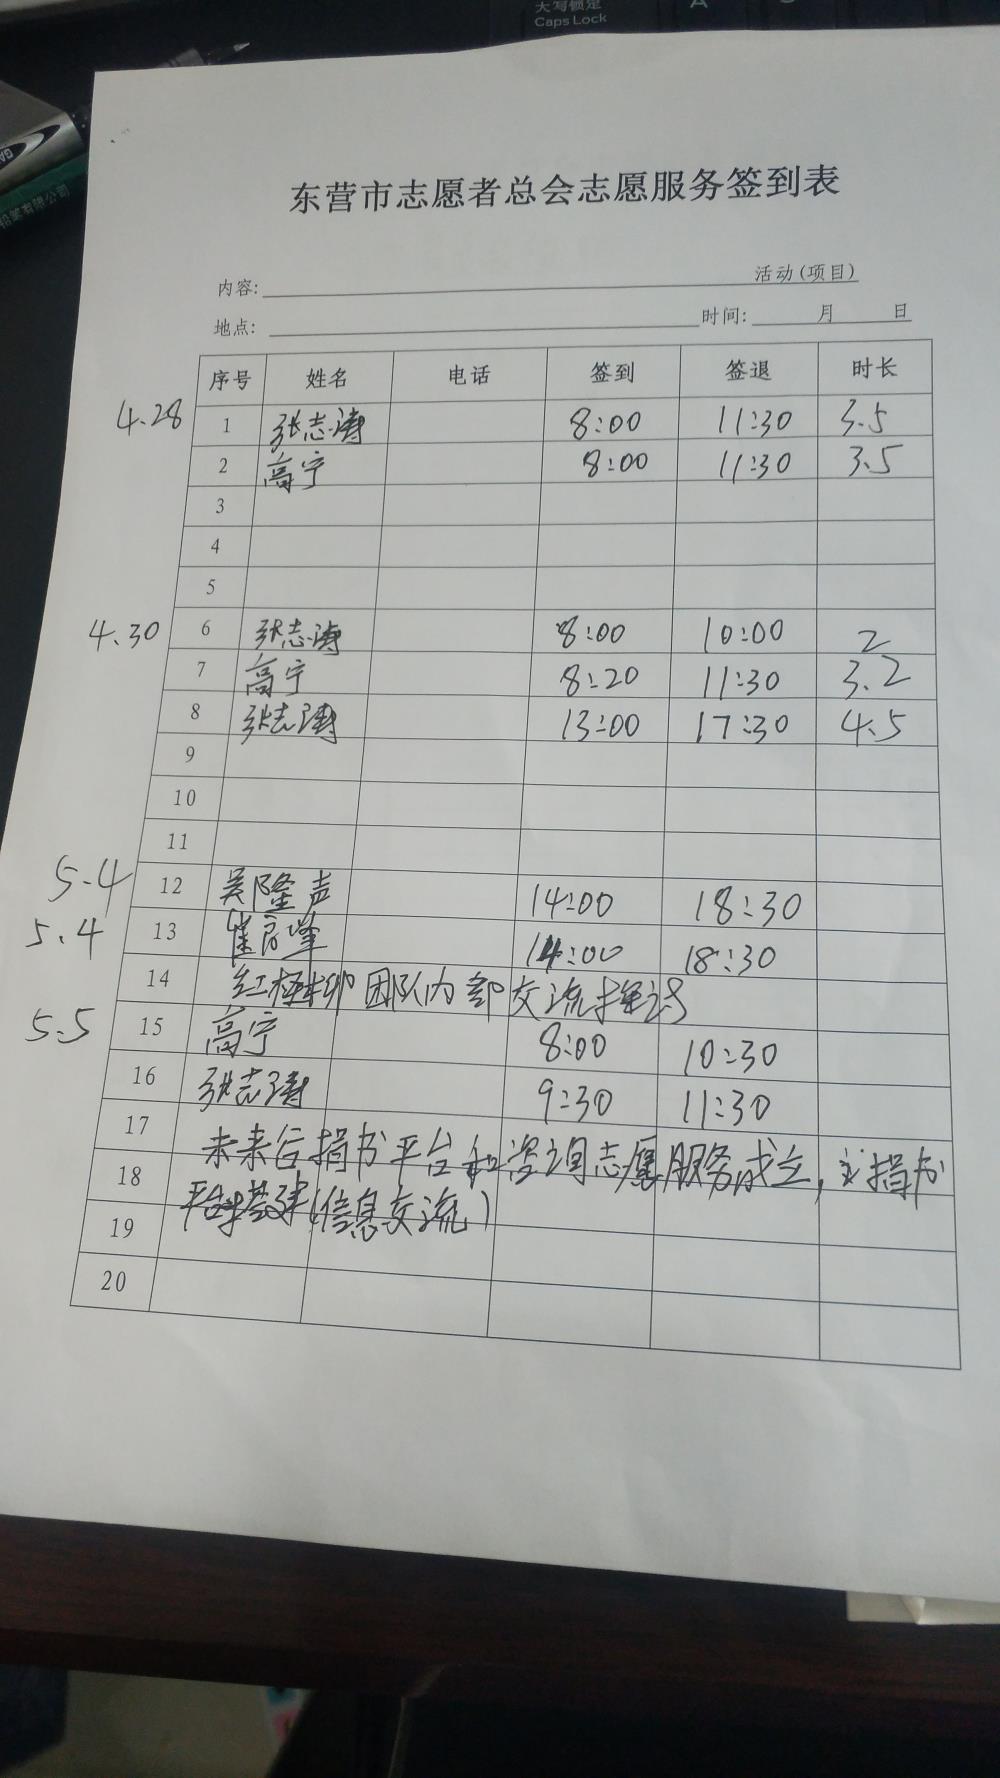 大写锁定
Caps Lock
A
GA
铅笔有限公司
东营市志愿者总会志愿服务签到表
内容: 活动(项目)
地点: 时间: 月 日
序号 姓名 电话 签到 签退 时长
4.28 1 张志涛 8:00 11:30 3.5
2 高宁 8:00 11:30 3.5
3
4
5
4.30 6 张志涛 8:00 10:00 2
7 高宁 8:20 11:30 3.2
8 张志涛 13:00 17:30 4.5
9
10
11
5.4 12 吴隆声 14:00 18:30
5.4 13 崔 峰 14:00 18:30
14 红柽柳团队内部交流探讨
5.5 15 高宁 8:00 10:30
16 张志涛 9:30 11:30
17 未来后捐书平台和咨询志愿服务成立, 捐书
18 平台搭建(信息交流)
19
20